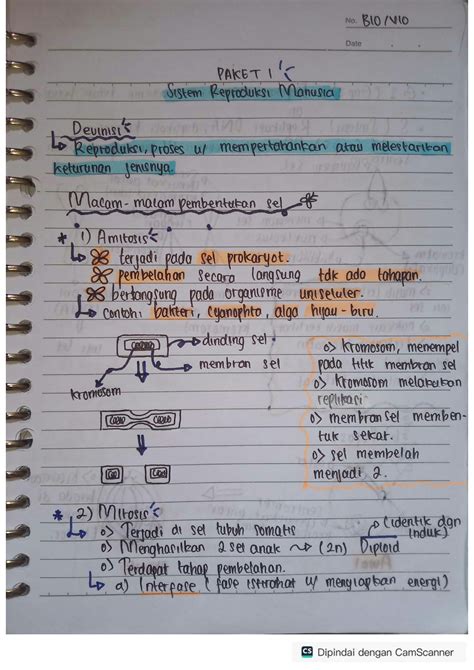 No. BIO/VIO
Date
PAKET 1
Sistem Reproduksi Manusia
Devinisi
Reproduksi, proses u/ mempertahankan atau melestarikan
keturunan jenisnya.
Macam-macam pembentukan sel
* 1) Amitosis
terjadi pada sel prokaryot.
pembelahan secara langsung tdk ada tahapan.
berlangsung pada organisme uniseluler.
contoh: bakteri, cyanophto, alga hijau-biru.
dinding sel
membran sel
kromosom
o> kromosom, menempel
pada titik membran sel
o> kromosom melakukan
replikasi
o> membran sel memben-
tuk sekat.
o> sel membelah
menjadi 2.
* 2) Mitosis
o> Terjadi di sel tubuh somatis
o> Menghasilkan 2 sel anak → (2n) Diploid
(identik dgn
induk)
o> Terdapat tahap pembelahan.
a) Interfase (fase istirahat u/ menyiapkan energi)
CS Dipindai dengan CamScanner